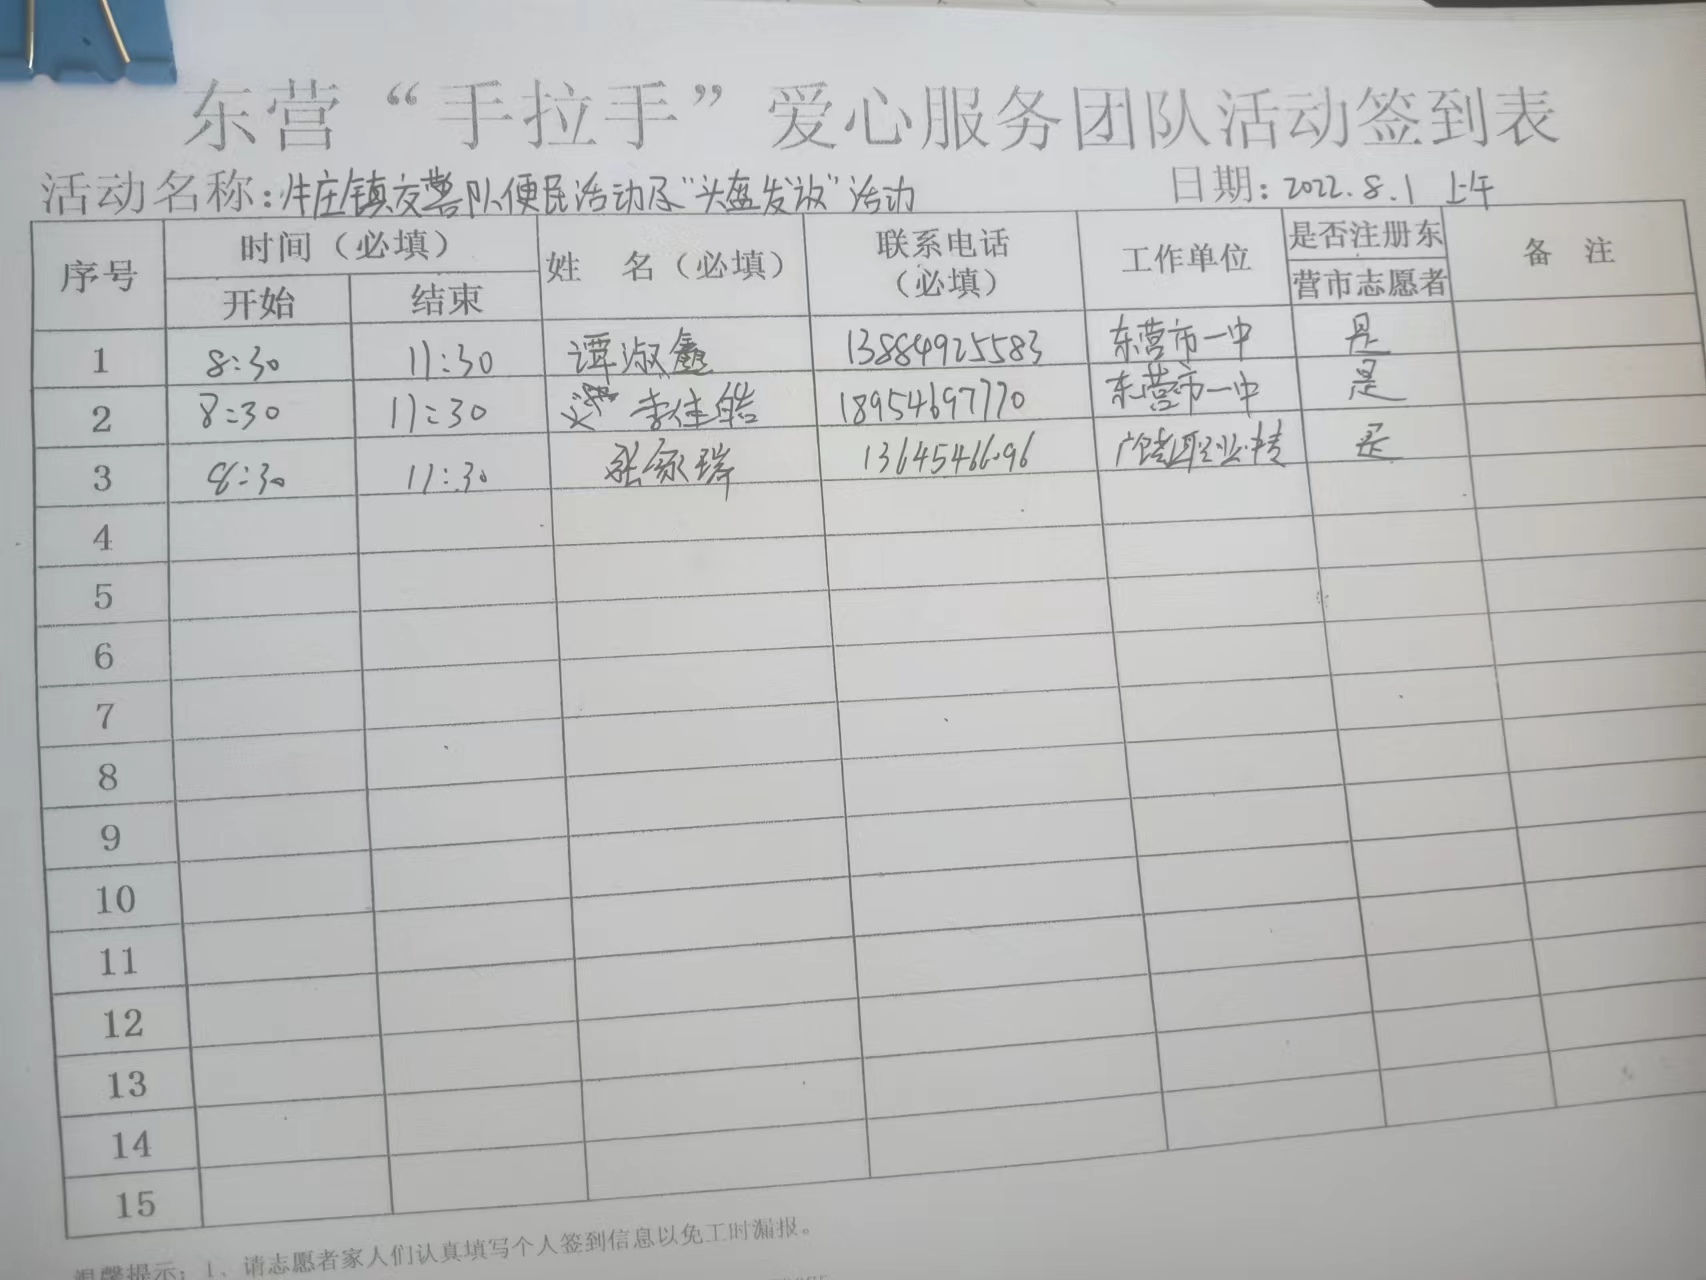 东营“手拉手”爱心服务团队活动签到表
活动名称：牛庄镇交警队便民活动及“头盔发放”活动 日期：2022.8.1 上午
序号 时间（必填） 姓 名（必填） 联系电话（必填） 工作单位 是否注册东营市志愿者 备 注
开始 结束
1 8:30 11:30 谭淑鑫 13884925583 东营市一中 是
2 8:30 11:30 李佳皓 18954697770 东营市一中 是
3 8:30 11:30 张家瑞 13645466096 是
4
5
6
7
8
9
10
11
12
13
14
15
温馨提示：1、请志愿者家人们认真填写个人签到信息以免工时漏报。